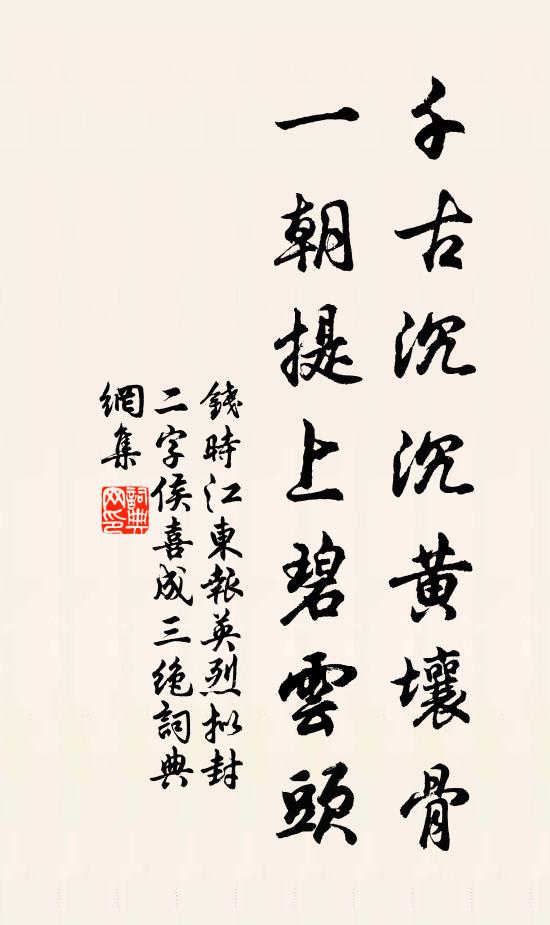 千古沉沉黄壤骨
一朝提上碧雲頭
錢時江東報英烈拟封
二字侯喜成三绝詞典
網集
詞典
网印